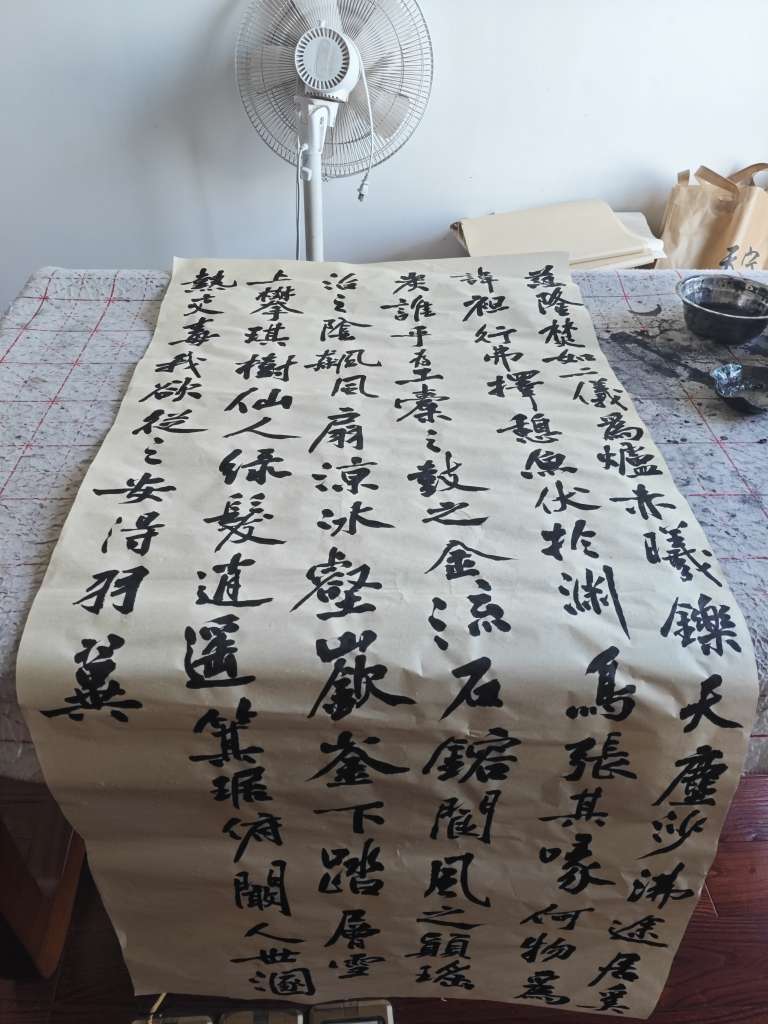 蘊隆焚如二儀為爐赤曦鑠天塵沙沸途居奚
許袒行弗擇憩魚伏於淵鳥張其喙何物為
炭誰乎為工橐々鼓之金流石鎔閬風之顛瑤
池之陰飆風扇涼冰壑嶔崟下踏層雪
上攀琪樹仙人綠髮逍遙箕踞俯闞人世溷
熱交毒我欲從之安得羽翼